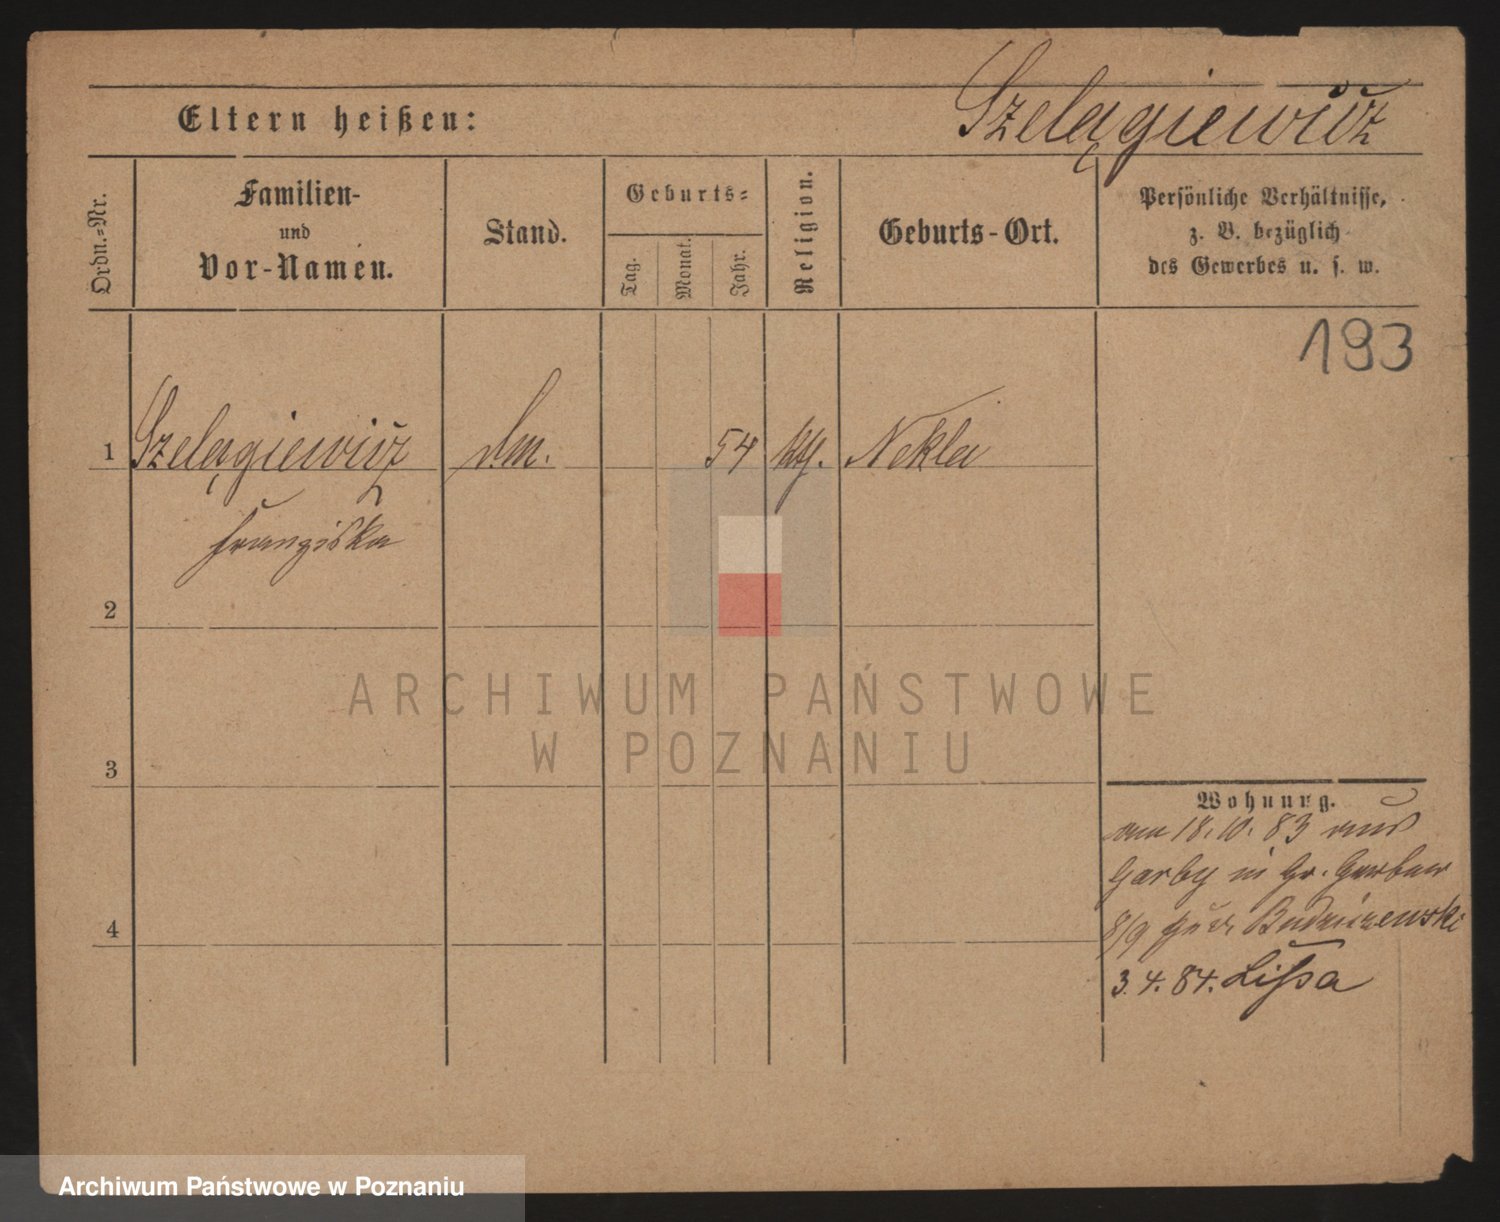 Szelągiewicz
Eltern heißen:
Ordn.=Nr.
Familien-
und
Vor-Namen.
Stand.
Geburts=
Tag.
Monat.
Jahr.
Religion.
Geburts-Ort.
Persönliche Verhältnisse,
z. B. bezüglich
des Gewerbes u. s. w.
193
1 Szelągiewicz 54 kth. Nekla
Franziska
2
3
4
Wohnung.
am 18.10.83 aus
Garby in Gr. Gerber
8/9 bei
3.4.84. Lissa
ARCHIWUM PAŃSTWOWE
W POZNANIU
Archiwum Państwowe w Poznaniu